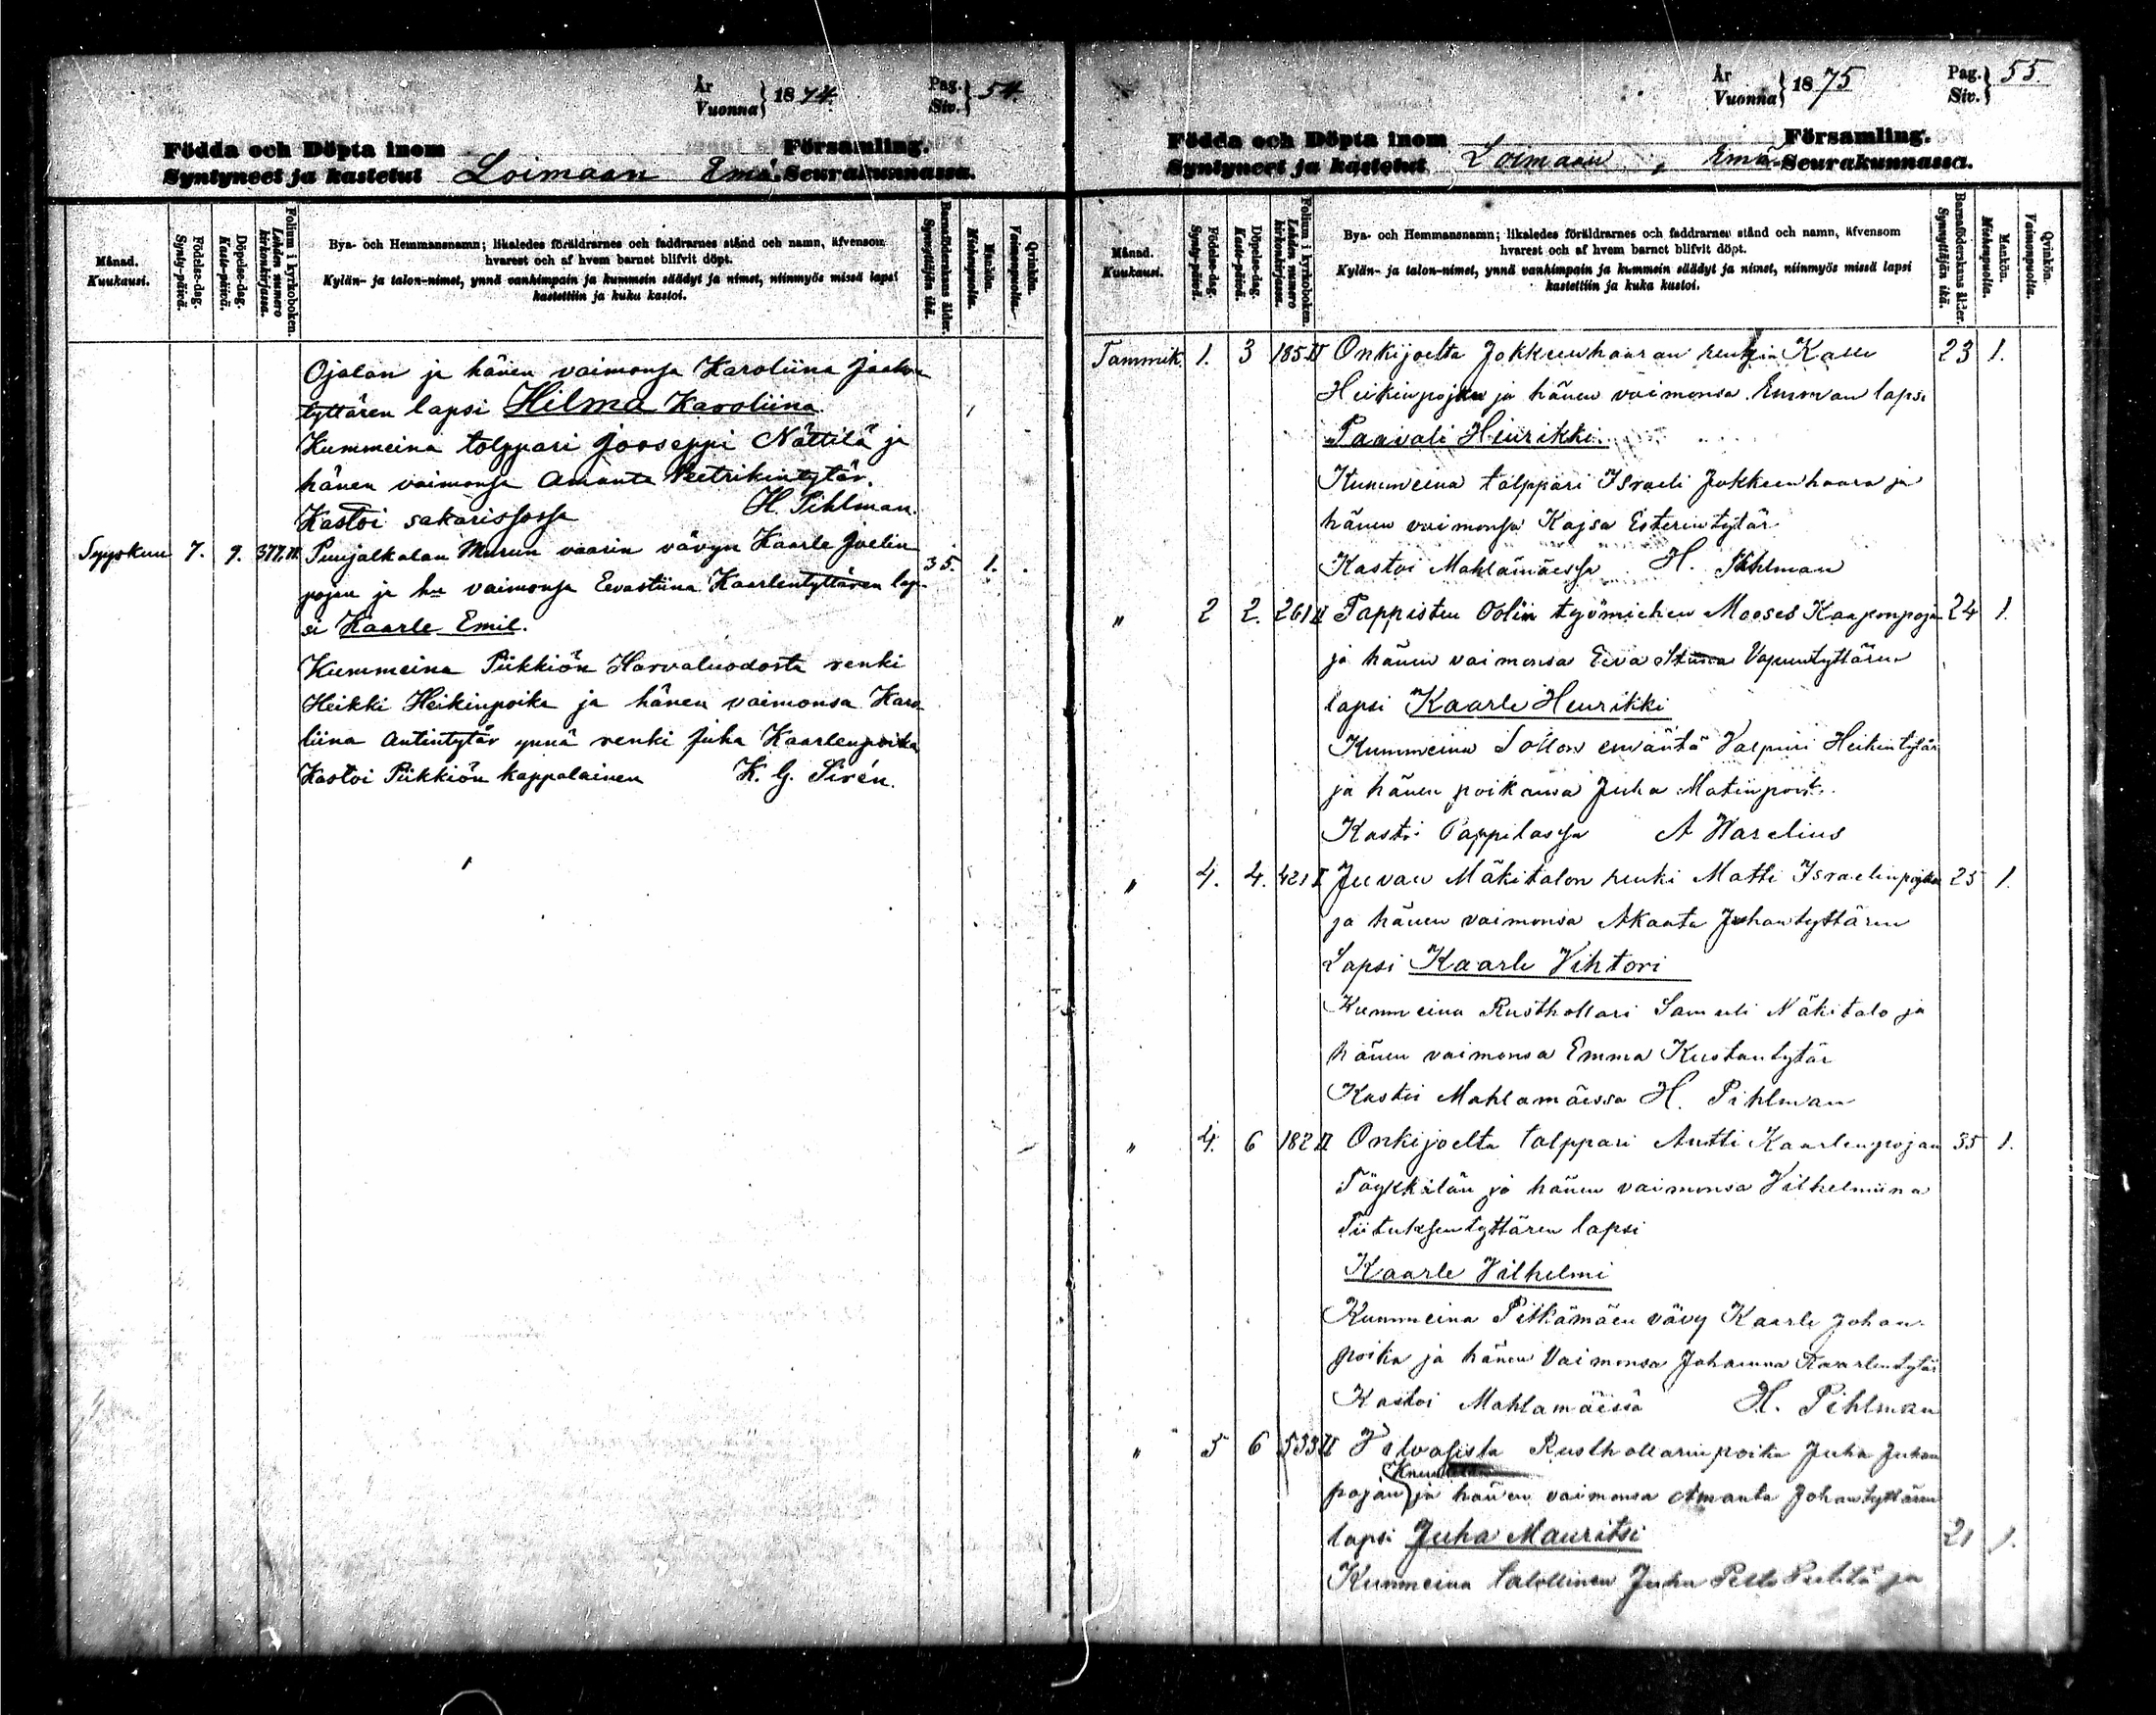 År
Vuonna } 1874.
Pag.
Siv. } 54.
Födda och Döpta inom Församling.
Syntyneet ja kastetut Loimaan Emä Seurakunnassa.
Månad.
Kuukausi.
Födelse-dag.
Synty-päivä.
Döpelse-dag.
Kaste-päivä.
Folium i kyrkoboken.
Lehden numero kirkonkirjassa.
Bya- och Hemmansnamn; likaledes föräldrarnes och faddrarnes stånd och namn, äfvensom
hvarest och af hvem barnet blifvit döpt.
Kylän- ja talon-nimet, ynnä vanhimpain ja kummein säädyt ja nimet, niinmyös missä lapsi
kastettiin ja kuka kastoi.
Barnaföderskans ålder.
Synnyttäjän ikä.
Mankön.
Miehenpuolta.
Qvinkön.
Vaimonpuolta.
Ojalan ja hänen vaimonsa Karoliina Jaakon
tyttären lapsi Hilma Karoliina.
Kummeina tolppari Jooseppi Nättilä ja
hänen vaimonsa Amanta Peetrikintytär.
Kastoi sakarissossa H. Pihlman.
Syyskuu 7. 9. 377.III. Puujalkalan Murun vaarin vävyn Kaarle Joelin 35. 1.
pojan ja hn vaimonsa Eevastiina Kaarlentyttären lap-
si Kaarle Emil.
Kummeina Piikkiön Harvaluodosta renki
Heikki Heikinpoika ja hänen vaimonsa Karo-
liina Antintytär ynnä renki Juha Kaarlenpoika
Kastoi Piikkiön kappalainen K. G. Sirén.
År
Vuonna } 1875
Pag.
Siv. } 55.
Födda och Döpta inom Församling.
Syntyneet ja kastetut Loimaan, Emä Seurakunnassa.
Månad.
Kuukausi.
Födelse-dag.
Synty-päivä.
Döpelse-dag.
Kaste-päivä.
Folium i kyrkoboken.
Lehden numero kirkonkirjassa.
Bya- och Hemmansnamn; likaledes föräldrarnes och faddrarnes stånd och namn, äfvensom
hvarest och af hvem barnet blifvit döpt.
Kylän- ja talon-nimet, ynnä vanhimpain ja kummein säädyt ja nimet, niinmyös missä lapsi
kastettiin ja kuka kastoi.
Barnaföderskans ålder.
Synnyttäjän ikä.
Mankön.
Miehenpuolta.
Qvinkön.
Vaimonpuolta.
Tammik. 1. 3 185 II Onkijoelta Jokkeenhaaran rengin Kalle 23 1.
Heikinpojan ja hänen vaimonsa Emman lapsi
Paavali Heinrikki.
Kummeina talppari Israeli Jokkeenhaara ja
hänen vaimonsa Kajsa Esterintytär
Kastoi Mahlamäessä H. Pihlman
" 2 2. 261 II Tappisten Oolin työmiehen Mooses Kaaponpojan 24 1.
ja hänen vaimonsa Eeva Stiina Vapuntyttären
lapsi Kaarle Henrikki
Kummeina Sollon emäntä Valpuri Heikintytär
ja hänen poikansa Juha Matinpoik.
Kastoi Pappilassa A Warelius
" 4. 4. 421 I Juvan Mäkitalon renki Matti Israelinpojan 25 1.
ja hänen vaimonsa Akaata Juhantyttären
Lapsi Kaarle Vihtori
Kummeina Rusthollari Samuli Mäkitalo ja
hänen vaimonsa Emma Kustantytär
Kastoi Mahlamäessä H. Pihlman
" 4. 6 182 II Onkijoelta talppari Antti Kaarlenpojan 35 1.
Töykkälän ja hänen vaimonsa Vilhelmiina
Tiituksentyttären lapsi
Kaarle Vilhelmi
Kummeina Pitkämäen vävy Kaarle Johan-
poika ja hänen Vaimonsa Johanna Kaarlentytär
Kastoi Mahlamäessä H. Pihlman
" 5 6 533 II Rusthollarinpoika Juha Juhan
pojan ja hänen vaimonsa Amanta Johantyttären
lapsi Juha Mauritsi 21 1.
Kummeina talollinen Juha ja